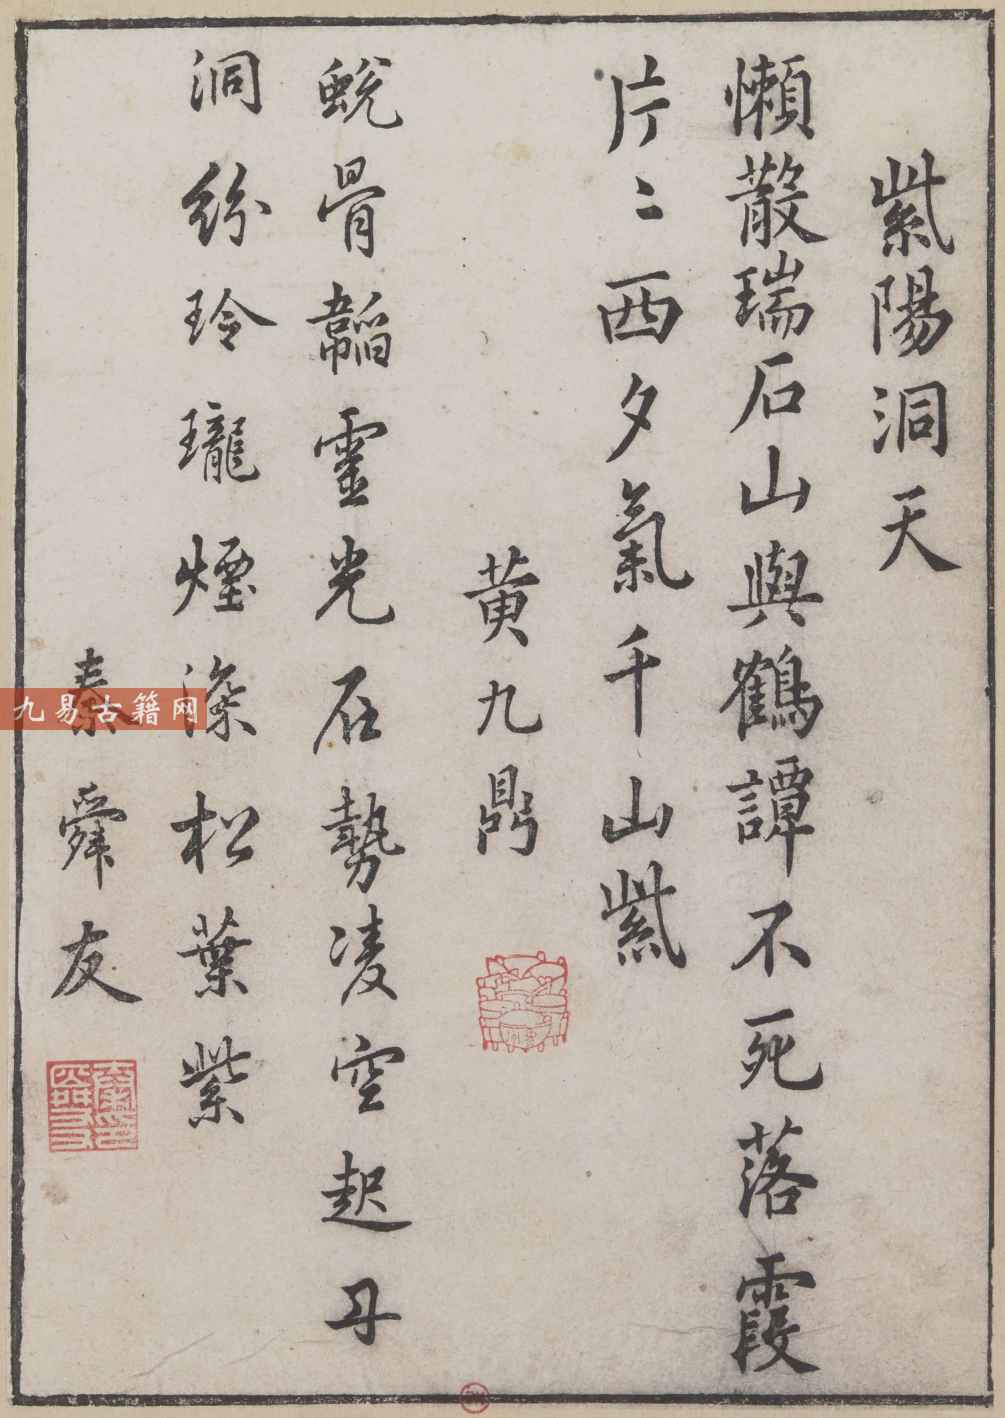 紫陽洞天
懶散瑞石山與鶴譚不死落霞
片〻西夕氣千山紫
黄九鼎
蛻骨韜靈光石勢凌空起丹
洞紛玲瓏煙深松葉紫
秦舜友
九易古籍网